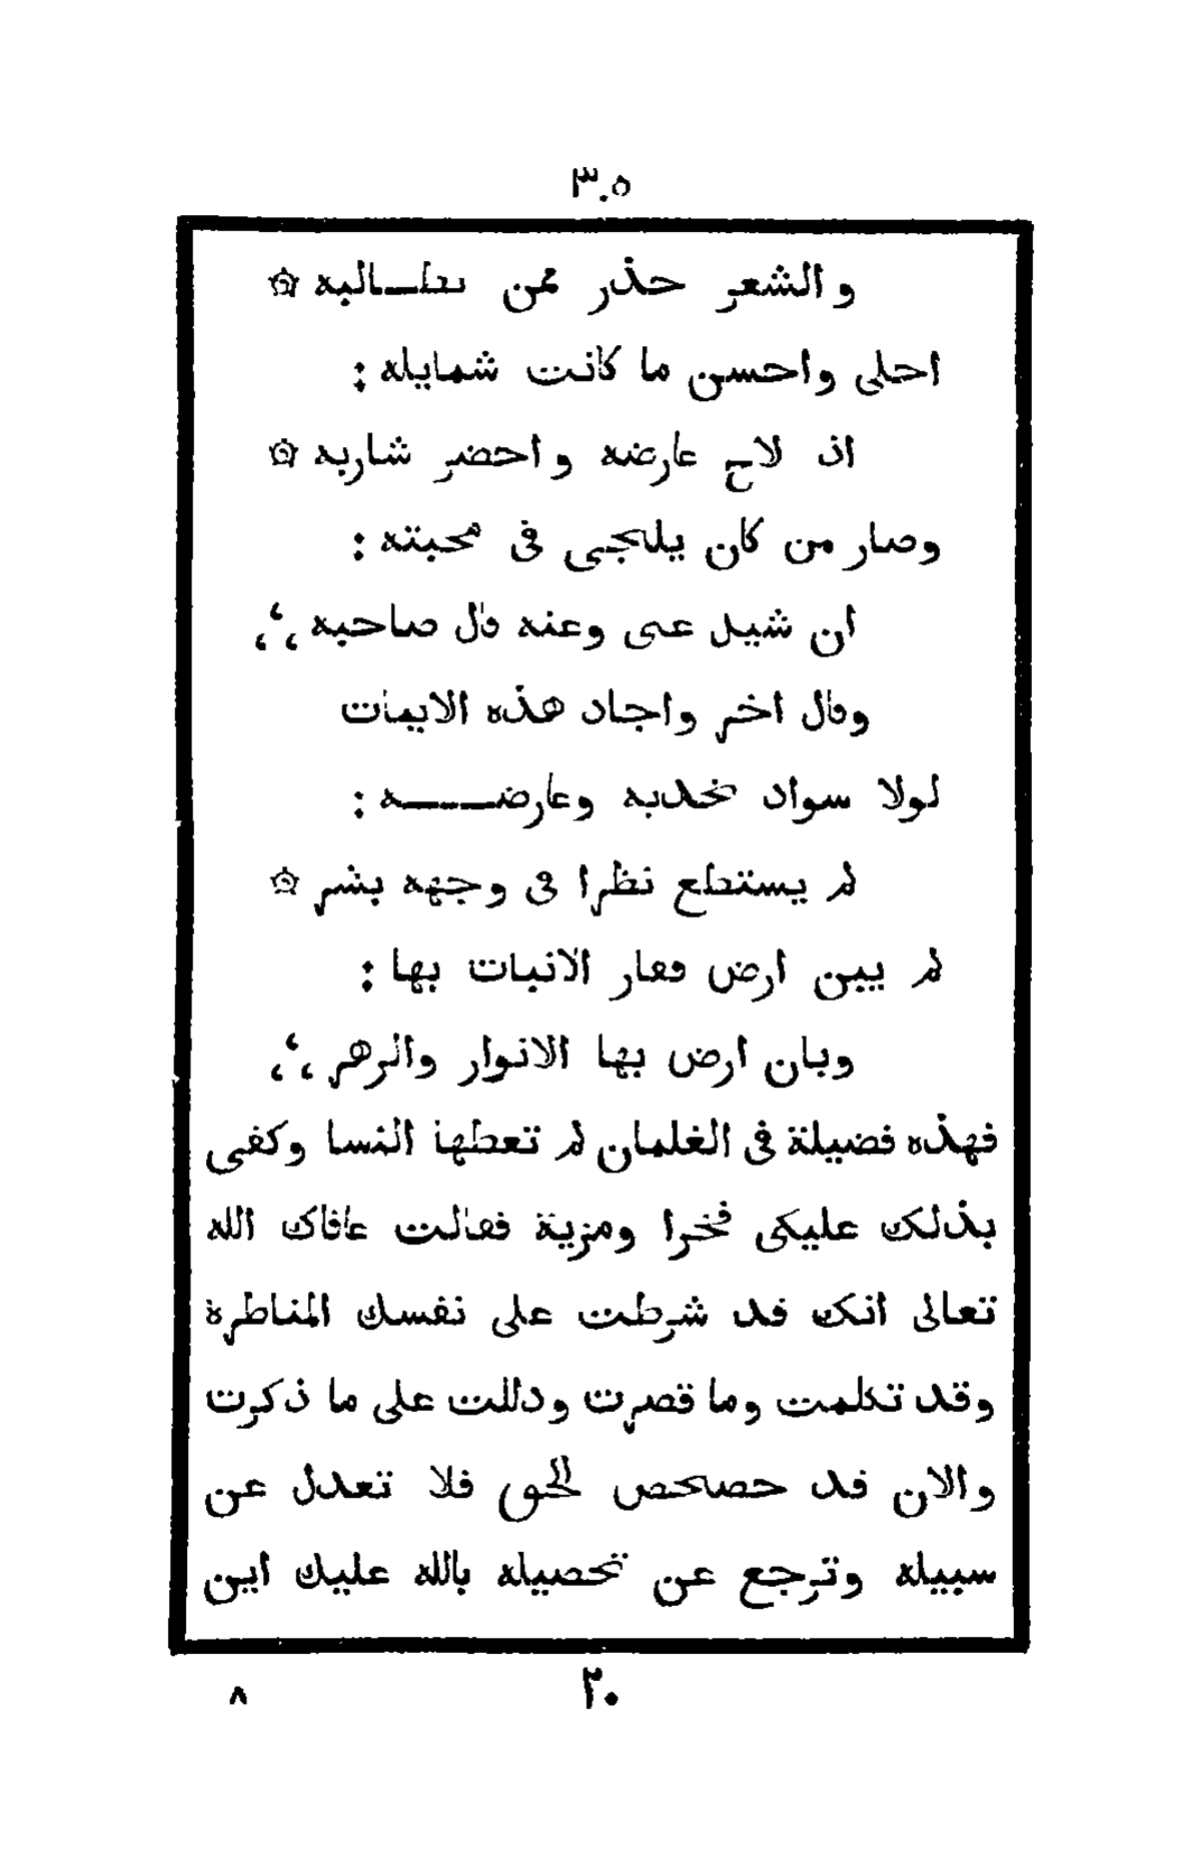 ٣٠٥
والشعر حذر ممن يطــالبه ۞
احلى واحسن ما كانت شمايله :
اذ لاح عارضه واحضر شاربه ۞
وصار من كان يلحجى فى محبته :
ان شيل عنى وعنه قال صاحبه ،‘،
وقال اخر واجاد هذه الابيات
لولا سواد بخديه وعارضــــه :
لم يستطع نظرا فى وجهه بشر ۞
لم يبن ارض قفار الانبات بها :
وبان ارض بها الانوار والزهر ،‘،
فهذه فضيلة فى الغلمان لم تعطها النسا وكفى
بذلك عليكى فخرا ومزية فقالت عافاك الله
تعالى انك قد شرطت على نفسك المناظرة
وقد تكلمت وما قصرت ودللت على ما ذكرت
والان قد حصحص الحق فلا تعدل عن
سبيله وترجع عن تحصيله بالله عليك اين
٢٠
٨